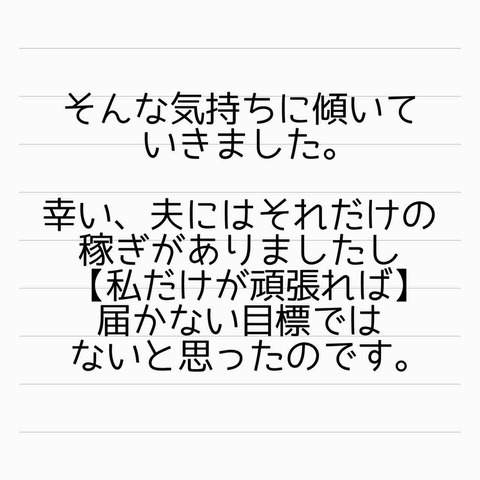 そんな気持ちに傾いて
いきました。
幸い、夫にはそれだけの
稼ぎがありましたし
【私だけが頑張れば】
届かない目標では
ないと思ったのです。